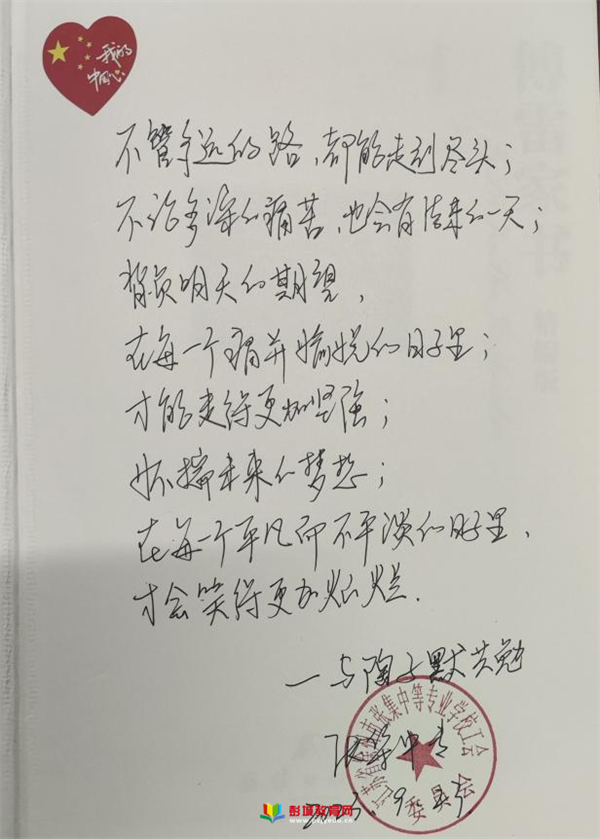 我的
中国心
不管多远的路，都能走到尽头；
不论多深的痛苦，也会有结束的一天；
背负明天的期望，
在每一个痛并愉悦的日子里；
才能走得更加坚强；
怀揣未来的梦想；
在每一个平凡而不平淡的日子里，
才会笑得更加灿烂.
—与陶子默共勉
张集中专
市张集中等专业学校工会
委员会
彭城教育网